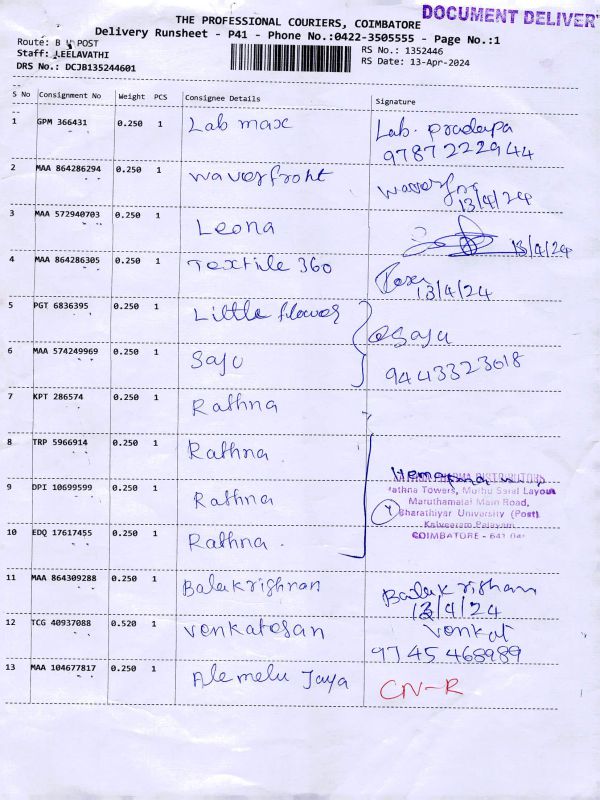 DOCUMENT DELIVER
THE PROFESSIONAL COURIERS, COIMBATORE
Delivery Runsheet - P41 - Phone No.:0422-3505555 - Page No.:1
Route: B U POST
Staff: LEELAVATHI
DRS No.: DCJB135244601
RS No.: 1352446
RS Date: 13-Apr-2024
S No Consignment No Weight PCS Consignee Details Signature
1 GPM 366431 0.250 1 Lab max Lab. pradeepa
9787222944
2 MAA 864286294 0.250 1 waverfront
13/4/24
3 MAA 572940703 0.250 1 Leona 13/4/24
4 MAA 864286305 0.250 1 Textile 360
13/4/24
5 PGT 6836395 0.250 1 Little flower Saju
6 MAA 574249969 0.250 1 Saju 9443323618
7 KPT 286574 0.250 1 Rathna
8 TRP 5966914 0.250 1 Rathna
DISTRIBUTORS
9 DPI 10699599 0.250 1 Rathna
Rathna Towers, Muthu Sami Layout
Maruthamalai Main Road,
Bharathiyar University (Post)
10 EDQ 17617455 0.250 1 Rathna
COIMBATORE - 641 041
11 MAA 864309288 0.250 1 Balakrishnan Balakrishan
13/4/24
12 TCG 40937088 0.520 1 Venkatesan Venkat
9745468989
13 MAA 104677817 0.250 1 Alemelu Jaya CN-R